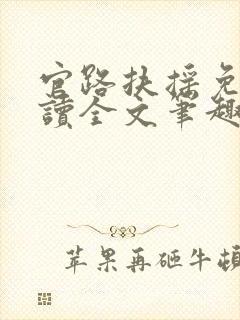 官路扶搖免
讀全文筆趣
苹果再砸牛頓